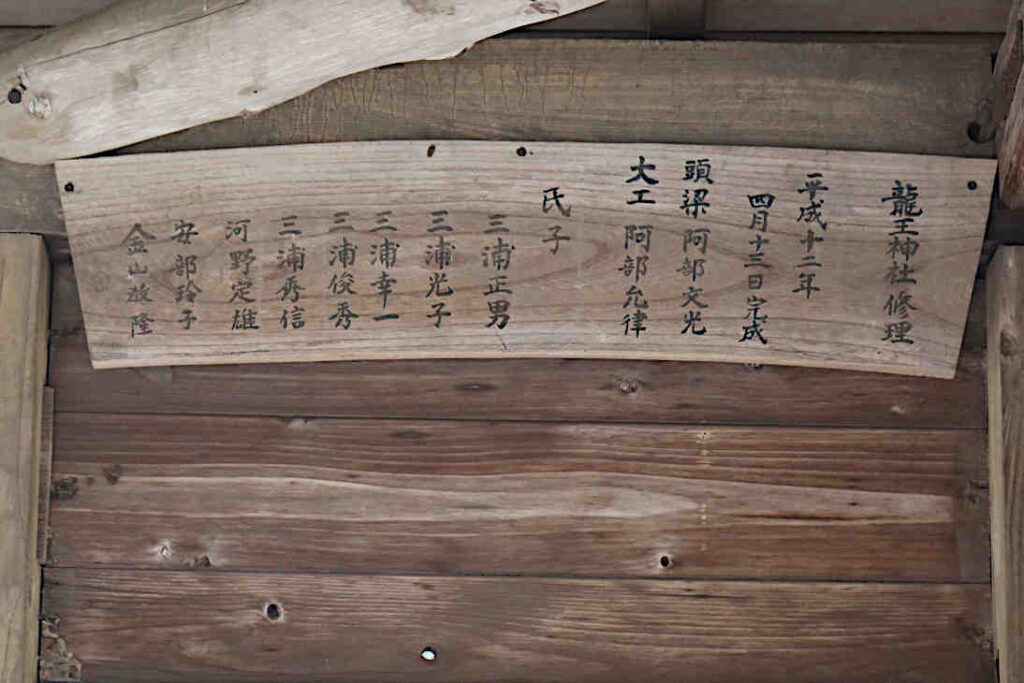 龍王神社修理
平成十二年
四月十三日完成
頭梁 阿部文光
大工 阿部允律
氏子
三浦正男
三浦光子
三浦幸一
三浦俊秀
三浦秀信
河野定雄
安部玲子
金山敬隆